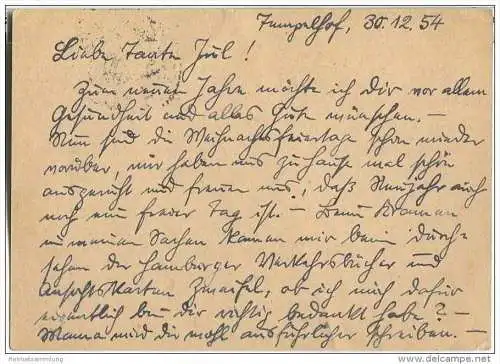 Tempelhof, 30.12.54
Liebe Tante Jul!
Zum neuen Jahre möchte ich dir vor allem
Gesundheit und alles Gute wünschen. –
Nun sind die Weihnachtsfeiertage schon wieder
vorüber, wir haben uns zuhause mal schön
ausgeruht und freuen uns, daß Neujahr auch
noch ein freier Tag ist. – Beim Kramen
in meinen Sachen kamen mir beim Durch-
sehen der Hamburger Verkehrsbücher und
Ansichtskarten Zweifel, ob ich mich dafür
eigentlich bei dir richtig bedankt habe? –
Mama wird dir wohl ausführlicher schreiben. –
www.delcampe.net